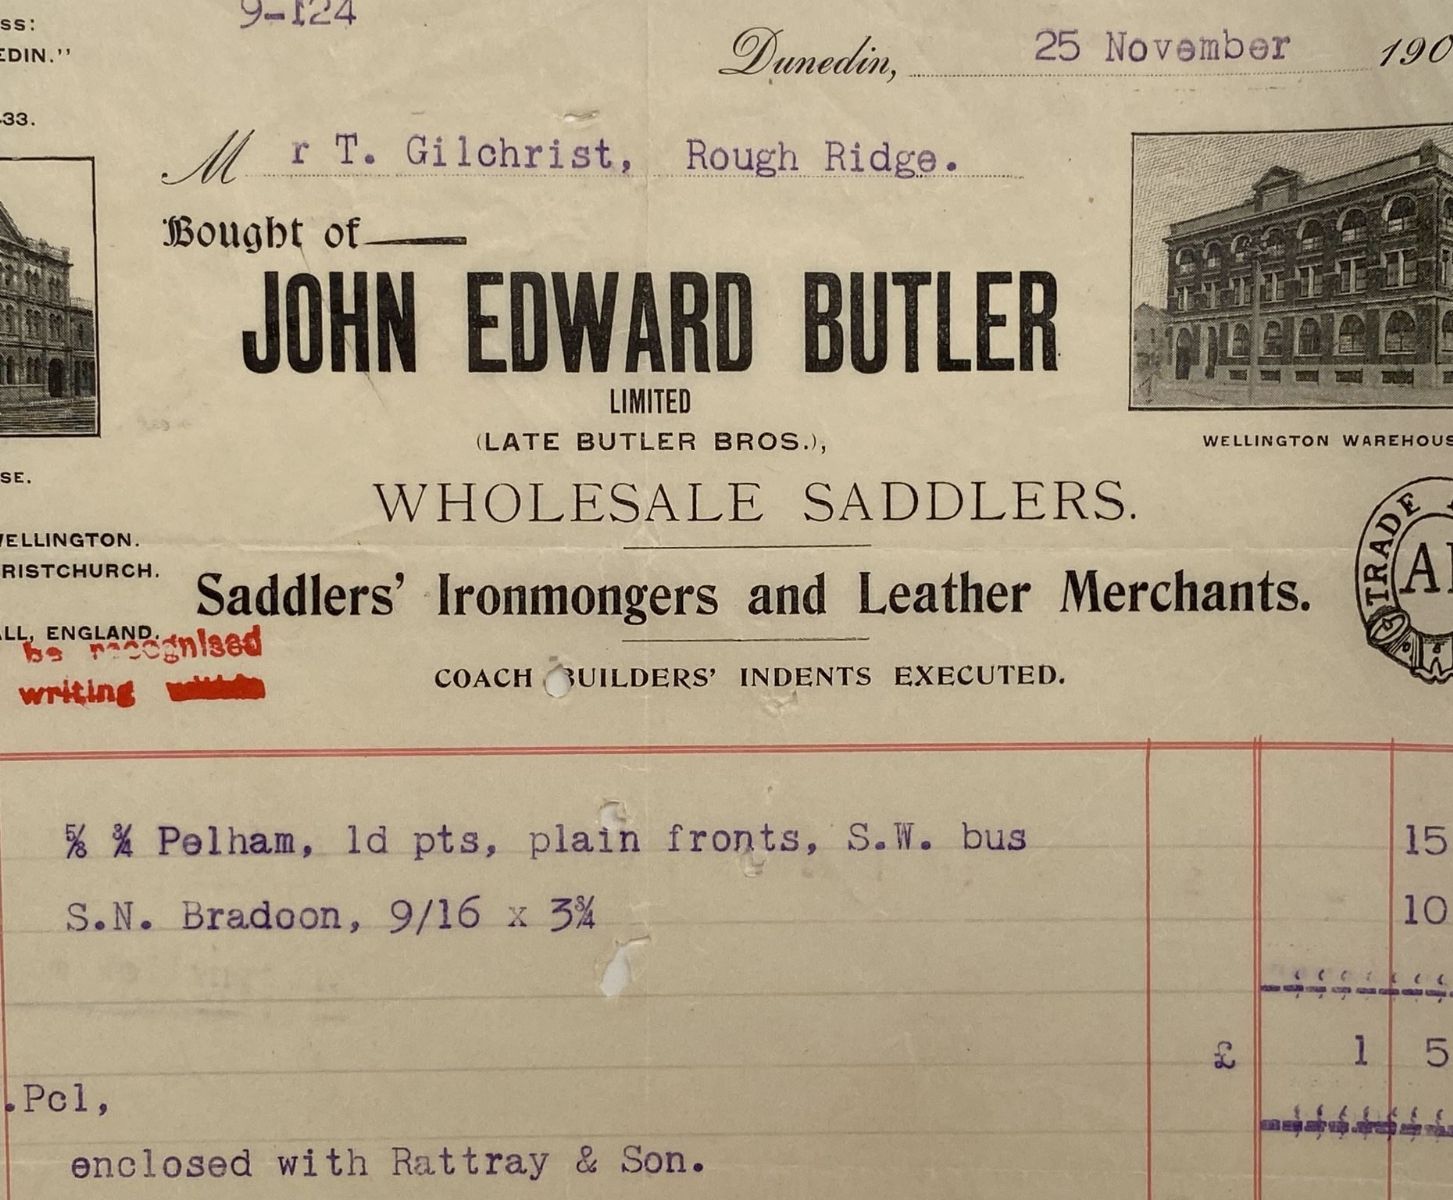 ss:
EDIN."
9-124
Dunedin, 25 November 190
33.
Mr T. Gilchrist, Rough Ridge.
Bought of
JOHN EDWARD BUTLER
LIMITED
(LATE BUTLER BROS.),
WHOLESALE SADDLERS.
Saddlers' Ironmongers and Leather Merchants.
COACH BUILDERS' INDENTS EXECUTED.
WELLINGTON WAREHOUS
SE.
WELLINGTON.
RISTCHURCH.
ALL, ENGLAND.
be recognised
writing
TRADE
⅝ ¾ Pelham, ld pts, plain fronts, S.W. bus 15
S.N. Bradoon, 9/16 x 3¾ 10
£ 1 5
.Pcl,
enclosed with Rattray & Son.